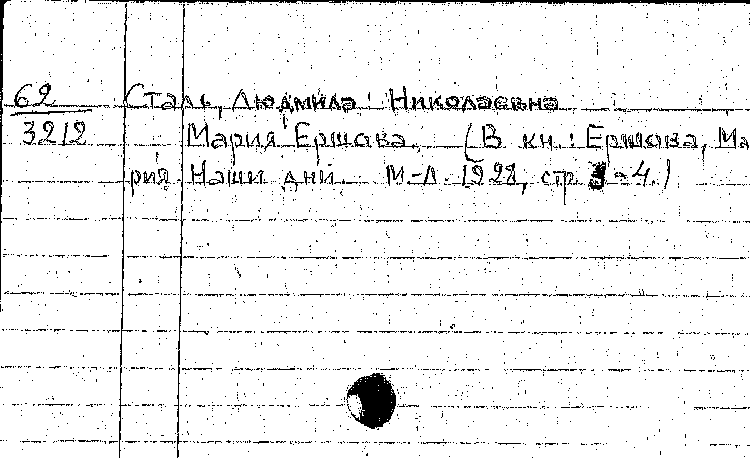 62
3212
Сталь, Людмила Николаевна
Мария Ершова. (В кн.: Ершова, Ма
рия. Наши дни. М-Л. 1928, стр. 3-4.)